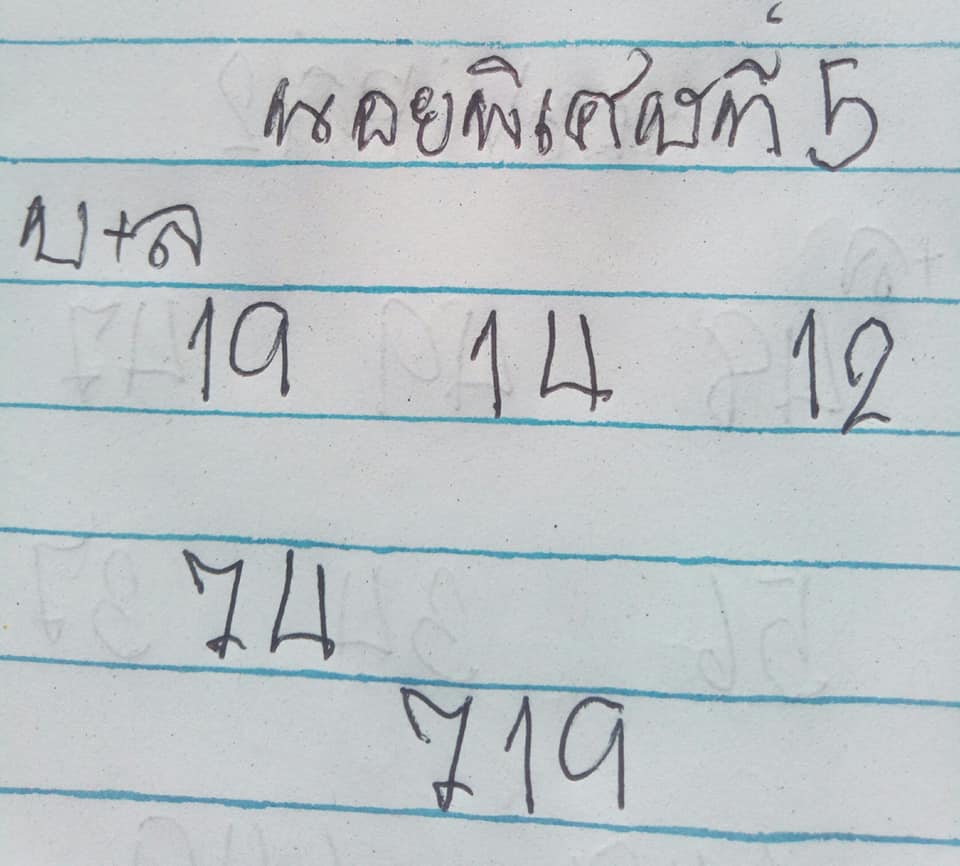 หอยพิเศษที่ 5
บ+ล
19 14 12
74
719